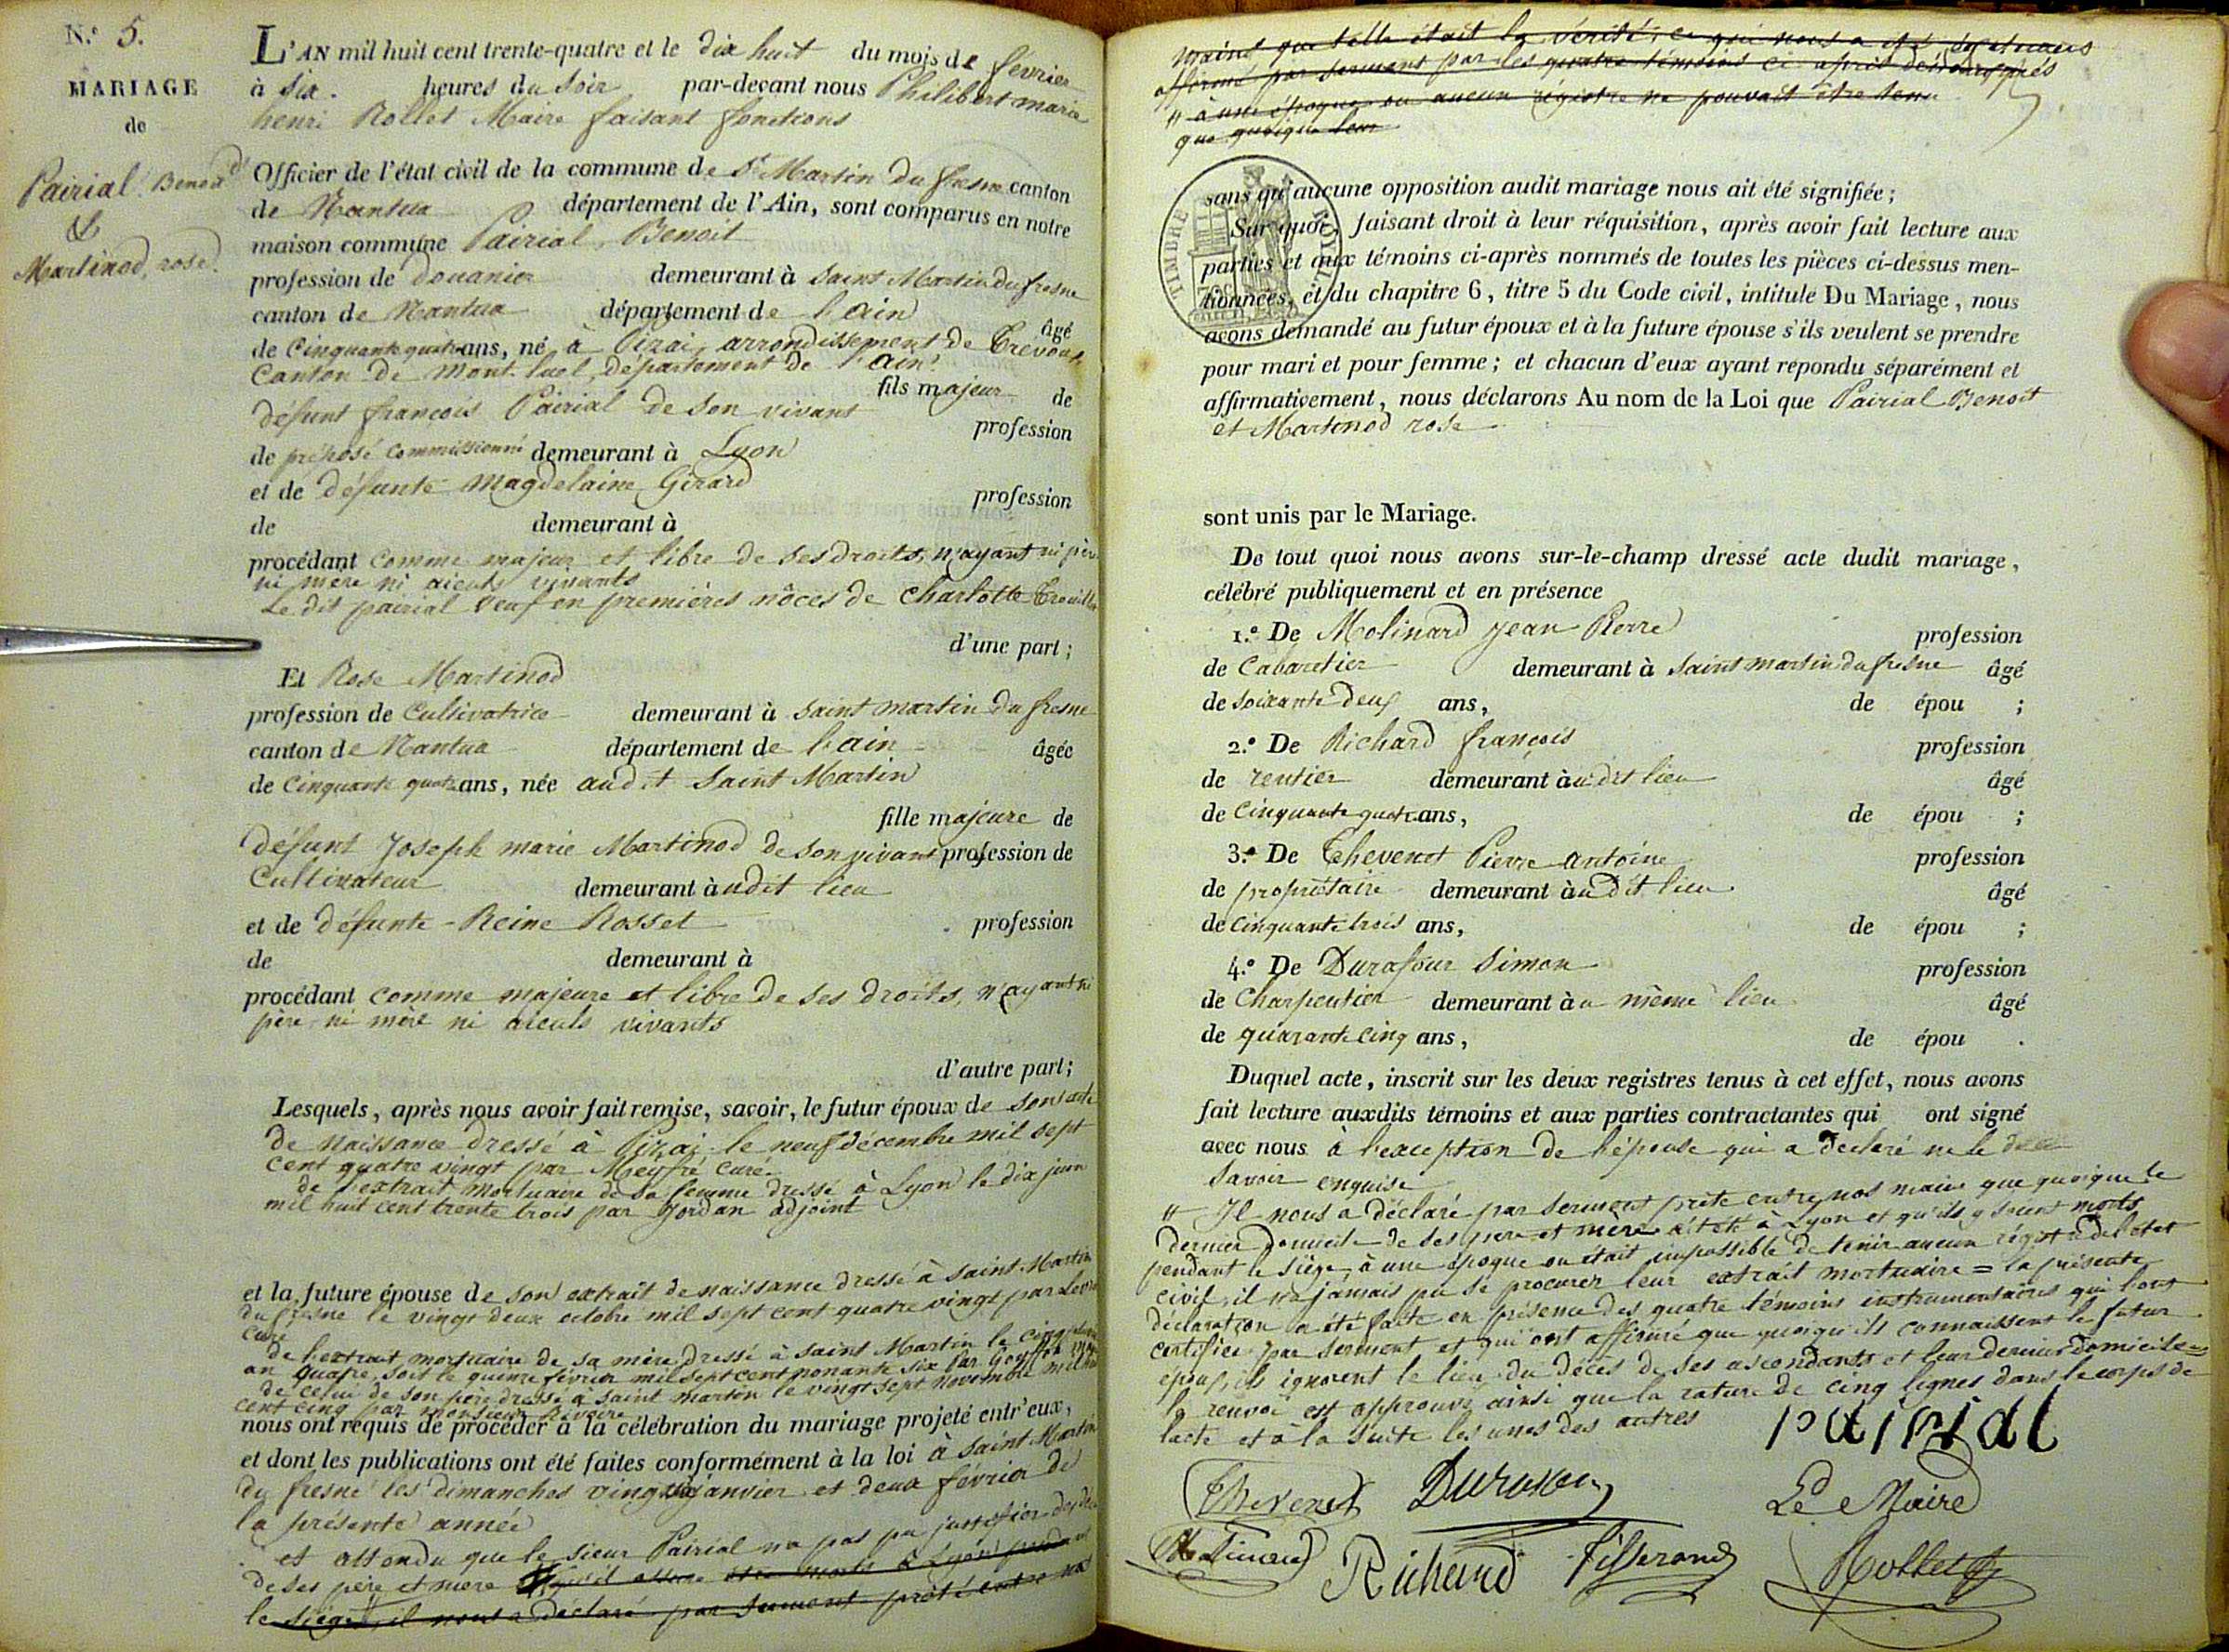 N.º 5.
MARIAGE
de
Pairial Benoit
&
Martinod, rose.
L'AN mil huit cent trente-quatre et le dix huit du mois de février
à six heures du soir par-devant nous Philibert marie
henri Rollet Maire faisant fonctions
Officier de l'état civil de la commune de St Martin du fresne canton
de Nantua département de l'Ain, sont comparus en notre
maison commune Pairial, Benoit
profession de douanier demeurant à saint Martin du fresne
canton de Nantua département de l'ain âgé
de Cinquante quatre ans, né à Pizai, arrondissement de Trevoux,
Canton de mont-luel, département de l'ain
fils majeur de
défunt françois Pairial de son vivant profession
de préposé Commissionné demeurant à Lyon
et de défunte Magdelaine Girard profession
de demeurant à
procédant comme majeur et libre de ses droits, n'ayant ni père
ni mère ni aieuls vivants
Le dit pairial veuf en premières nôces de Charlotte
d'une part;
Et Rose Martinod
profession de Cultivatrice demeurant à saint martin du fresne
canton de Nantua département de l'ain âgée
de Cinquante quatre ans, née audit saint Martin
fille majeure de
défunt Joseph marie Martinod de son vivant profession de
Cultivateur demeurant àudit lieu
et de défunte Reine Rosset profession
de demeurant à
procédant comme majeure et libre de ses droits, n'ayant ni
père ni mère ni aieuls vivants
d'autre part;
Lesquels, après nous avoir fait remise, savoir, le futur époux de son acte
de naissance dressé à Pizai le neuf décembre mil sept
cent quatre vingt par Meyfré curé.
de l'extrait mortuaire de sa femme dressé à Lyon le dix juin
mil huit cent trente trois par Jordan adjoint
et la future épouse de son extrait de naissance dressé à saint Martin
du fresne le vingt deux octobre mil sept cent quatre vingt par
Curé
de l'extrait mortuaire de sa mère dressé à saint Martin le cinq
an quatre, soit le quinze février mil sept cent nonante six par
de celui de son père dressé à saint martin le vingt sept novembre mil
cent cinq par monsieur Ravoire
nous ont requis de procéder à la célébration du mariage projeté entr'eux,
et dont les publications ont été faites conformément à la loi à saint Martin
du fresne les dimanches vingt six janvier et deux février de
la présente année
et attendu que le sieur Pairial n'a pas pu justifier
de ses père et mère qu'il assure être morts à Lyon pendant
le siège, il nous a déclaré par serment prêté entre nos
mains que telle était la vérité; ce qui nous a été
affirmé par serment par les quatre témoins ci-après
" à une époque ou aucun régistre ne pouvait être tenu
que quoique leur
TIMBRE ROYAL
sans qu'aucune opposition audit mariage nous ait été signifiée;
Sur quoi, faisant droit à leur réquisition, après avoir fait lecture aux
parties et aux témoins ci-après nommés de toutes les pièces ci-dessus men-
tionnées, et du chapitre 6, titre 5 du Code civil, intitulé Du Mariage, nous
avons demandé au futur époux et à la future épouse s'ils veulent se prendre
pour mari et pour femme; et chacun d'eux ayant répondu séparément et
affirmativement, nous déclarons Au nom de la Loi que Pairial Benoit
et Martinod rose
sont unis par le Mariage.
De tout quoi nous avons sur-le-champ dressé acte dudit mariage,
célébré publiquement et en présence
1.º De Molinard Jean Pierre profession
de Cabaretier demeurant à saint martin du fresne âgé
de soixante deux ans, de épou ;
2.º De Richard françois profession
de rentier demeurant àudit lieu âgé
de Cinquante quatre ans, de épou ;
3.º De Thevenet Pierre antoine profession
de propriétaire demeurant àudit lieu âgé
de Cinquante trois ans, de épou ;
4.º De Durafour Simon profession
de Charpentier demeurant àu même lieu âgé
de quarante cinq ans, de épou .
Duquel acte, inscrit sur les deux registres tenus à cet effet, nous avons
fait lecture auxdits témoins et aux parties contractantes qui ont signé
avec nous à l'exception de l'épouse qui a déclaré ne le
savoir enquise
" Il nous a déclaré par serment prêté entre nos mains que quoique le
dernier domicile de ses père et mère a été à Lyon et qu'ils y soient morts
pendant le siège, à une époque ou était impossible de tenir aucun régistre de l'état
civil, il n'a jamais pu se procurer leur extrait mortuaire = la présente
déclaration a été faite en présence des quatre témoins instrumentaires qui l'ont
certifiée par serment et qui ont affirmé que quoiqu'ils connaissent le futur
époux, ils ignorent le lieu du décès de ses ascendants et leur dernier domicile =
le renvoi est approuvé ainsi que la rature de cinq lignes dans le corps de
l'acte et à la suite les unes des autres
pairial
Thevenet Durafour Le Maire
Molinard Richard Tisserand Rollet